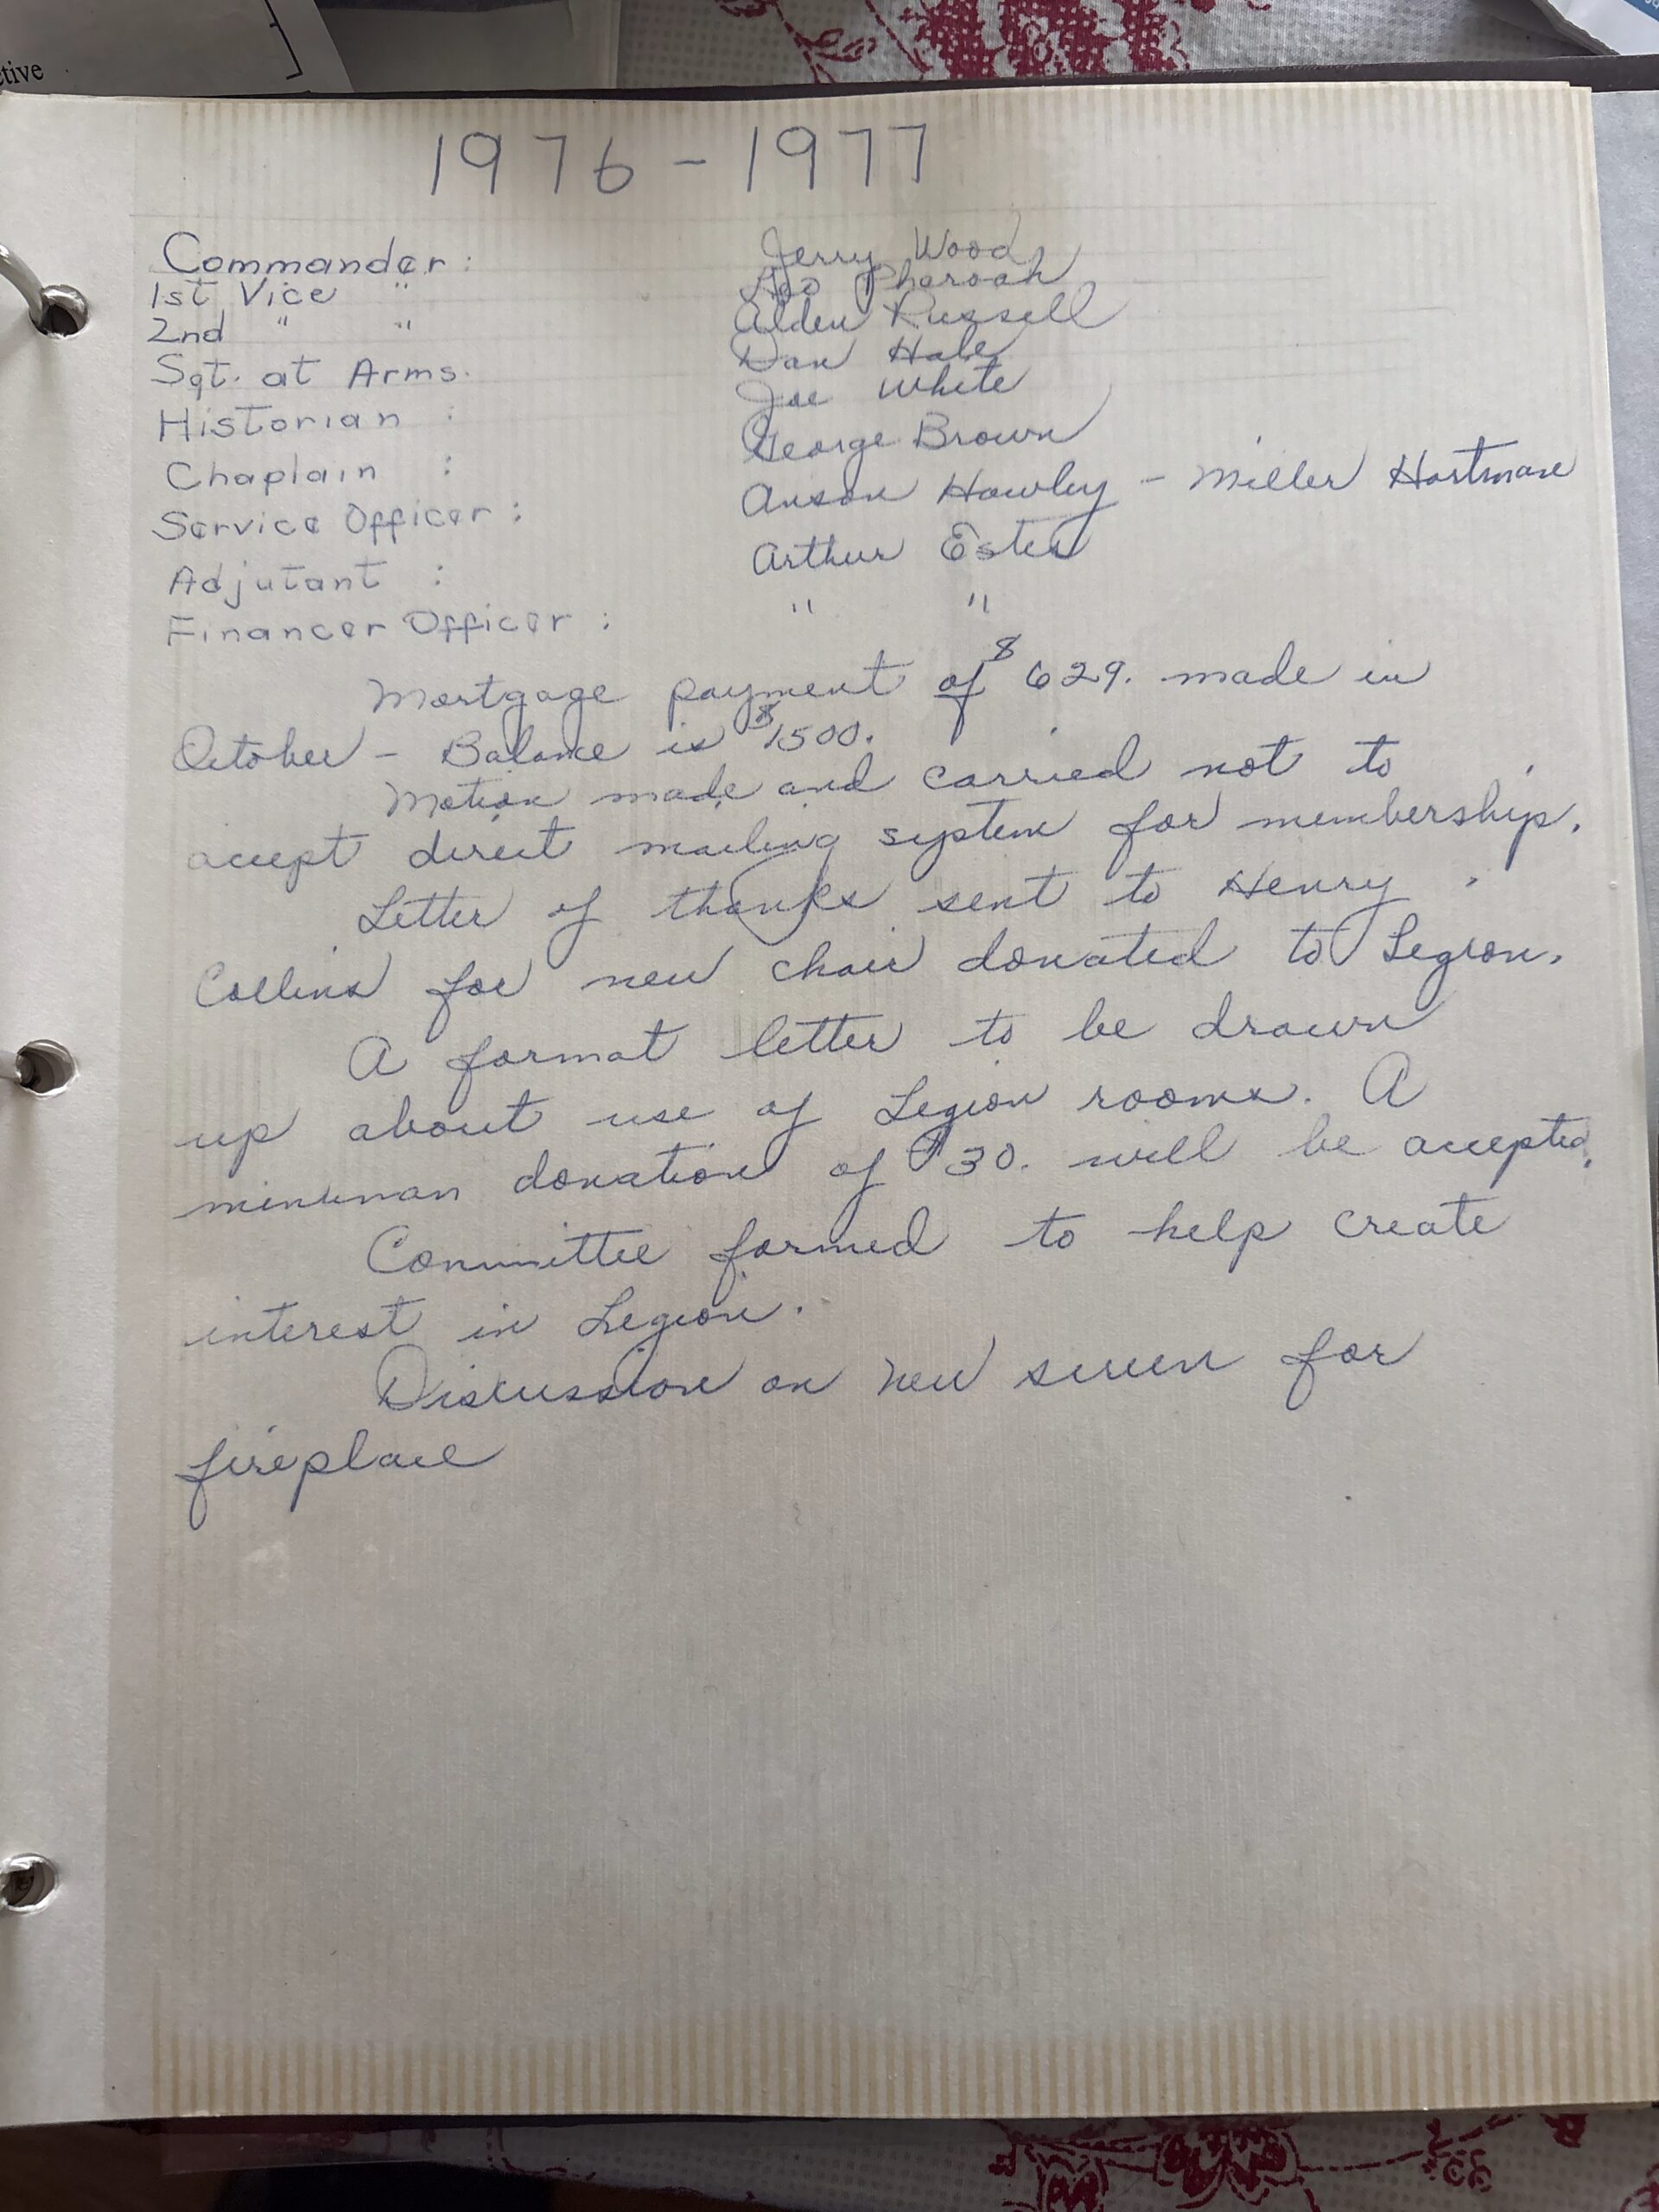 ctive
1976-1977
Commander: Jerry Wood
1st Vice " Leo Pharoah
2nd " " Alden Russell
Sgt. at Arms. Dan Hale
Historian : Joe White
Chaplain : George Brown
Service Officer: Anson Hawley - Miller Hartman
Adjutant : Arthur Estes
Financer Officer: " "
Mortgage payment of $629. made in
October - Balance is $1500.
Motion made and carried not to
accept direct mailing system for membership.
Letter of thanks sent to Henry
Collins for new chair donated to Legion.
A format letter to be drawn
up about use of Legion rooms. A
minuman donation of $30. will be accepted.
Committee formed to help create
interest in Legion.
Discussion on new screen for
fireplace